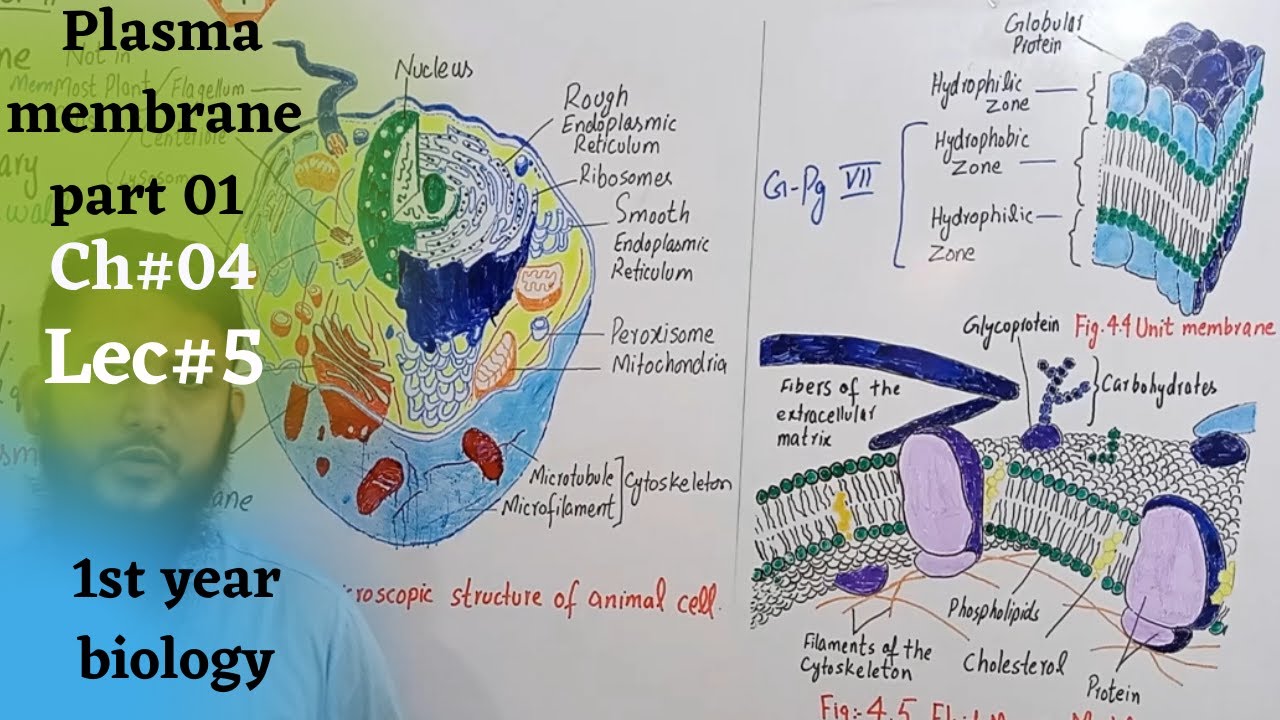 Plasma
membrane
part 01
Ch#04
Lec#5
1st year
biology
Not in
Most Plant
Flagellum
Centeriole
Nucleus
Rough
Endoplasmic
Reticulum
Ribosomes
Smooth
Endoplasmic
Reticulum
Peroxisome
Mitochondria
Microtubule
Microfilament
Cytoskeleton
roscopic structure of animal cell.
Globular
Protein
Hydrophilic
Zone
Hydrophobic
Zone
Hydrophilic
Zone
G-Pg VII
Fig. 4.4 Unit membrane
Glycoprotein
Carbohydrates
Fibers of the
extracellular
matrix
Phospholipids
Filaments of the
Cytoskeleton
Cholesterol
Protein
Fig:- 4.5